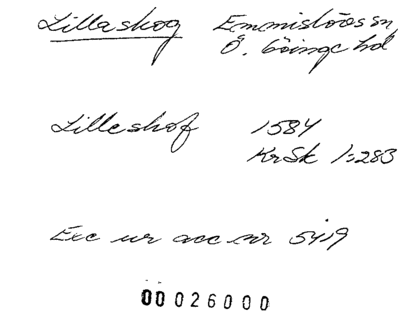 Lillaskog Emmislövs sn
Ö. Göinge hd
Lilleskof 1584
KrSk 1:283
Exc ur acc nr 5419
00026000